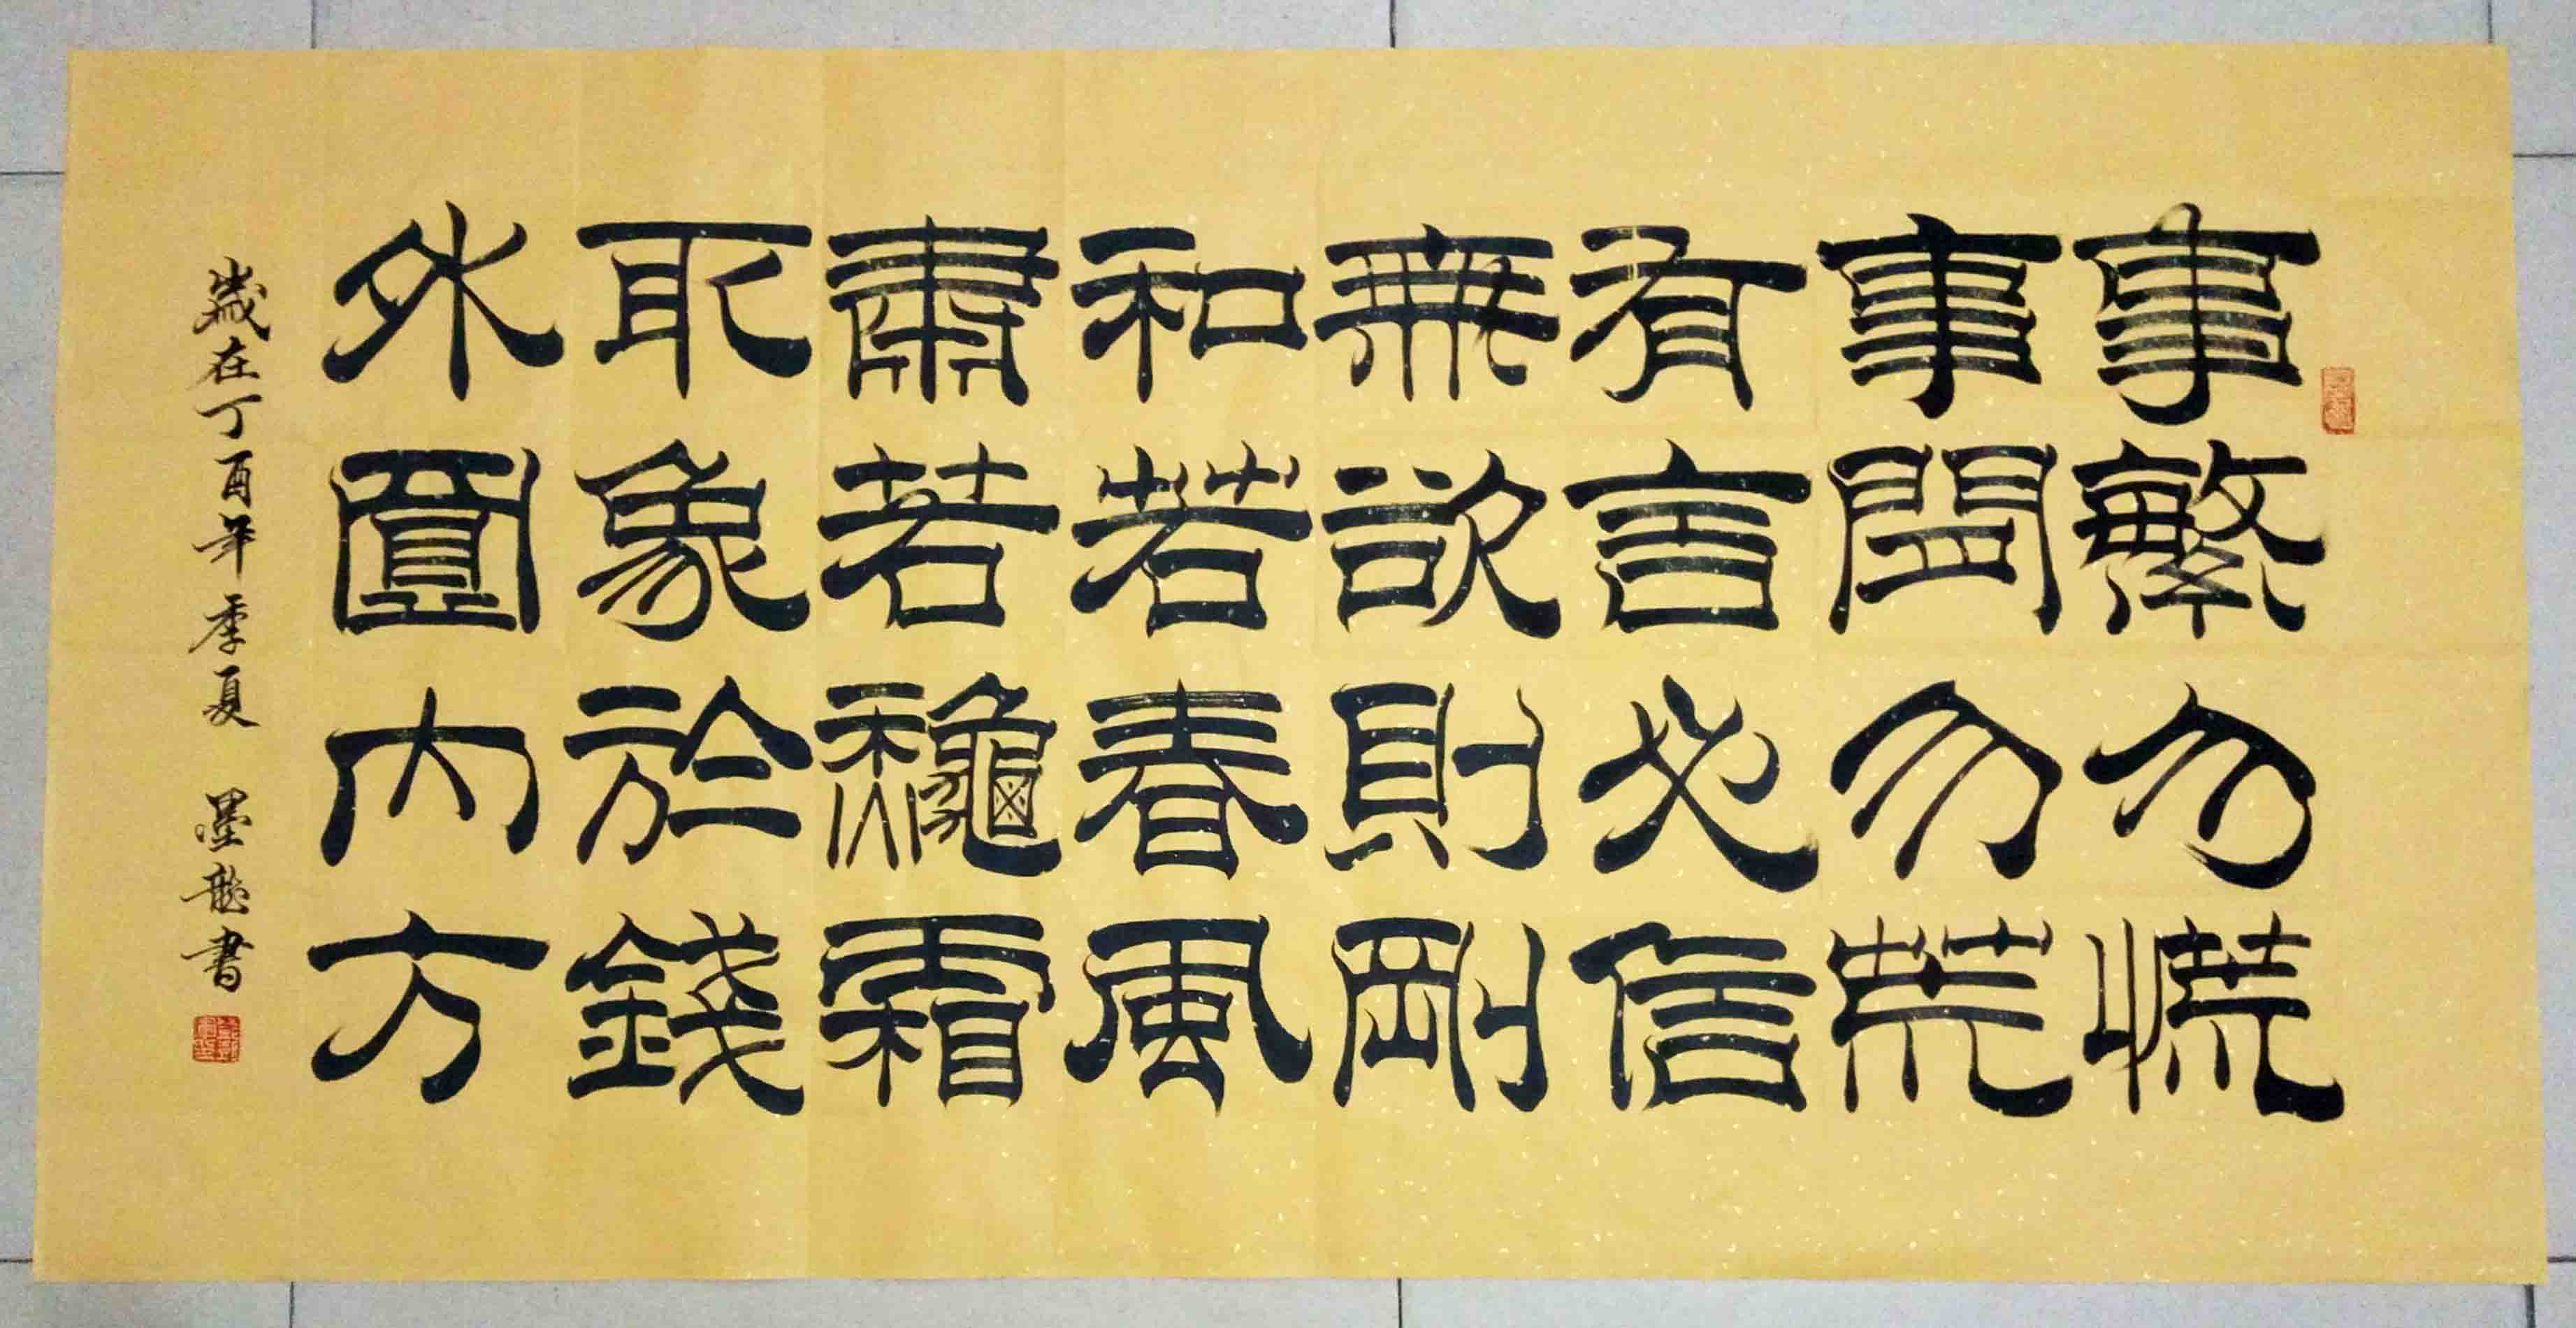 事繁勿慌
事閒勿荒
有言必信
無欲則剛
和若春風
肅若龝霜
取象於錢
外圓內方
歲在丁酉年季夏 墨龍書